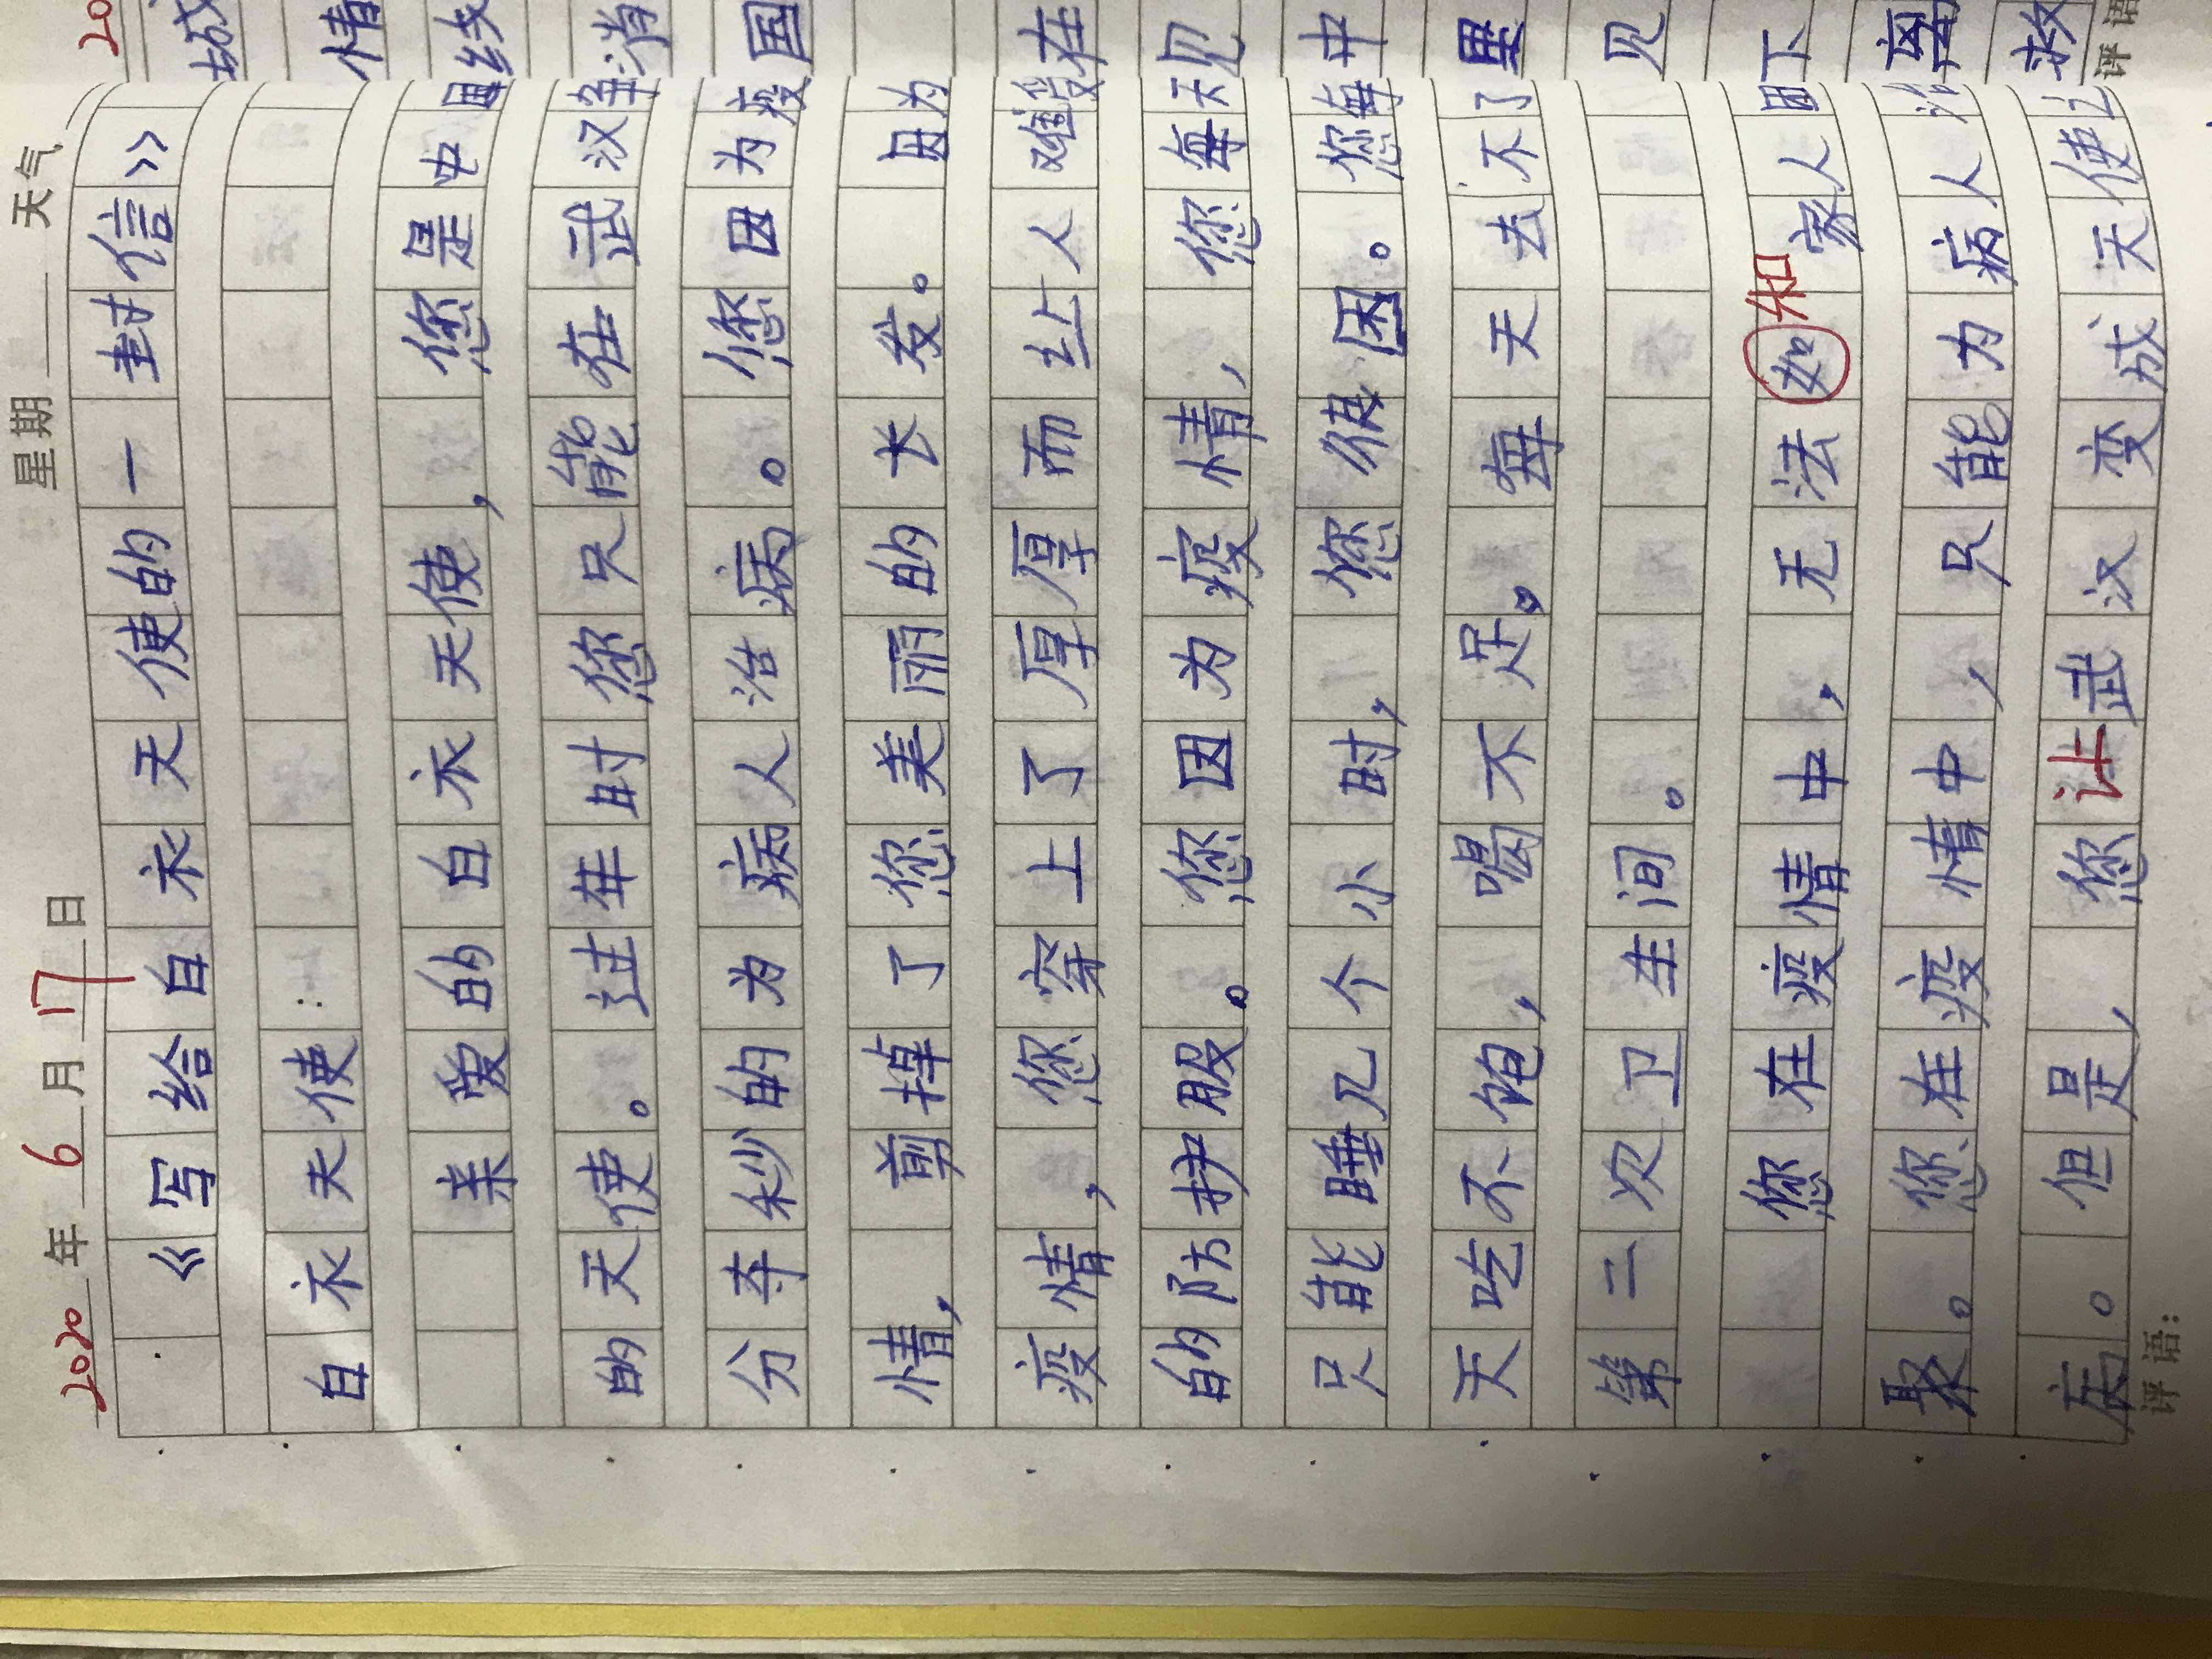 2020年6月17日 星期 天气
《写给白衣天使的一封信》
白衣天使：
亲爱的白衣天使，您是中国
的天使。过年时您只能在武汉争
分夺秒的为病人治病。您因为疫
情，剪掉了您美丽的长发。因为
疫情，您穿上了厚厚而让人难受
的防护服。您因为疫情，您每天
只能睡几个小时，您很困。您每
天吃不饱，喝不足。每天去不了
第二次卫生间。
您在疫情中，无法如和家人团
聚。您在疫情中，只能为病人治
病。但是，您让武汉变成天使之
评语：
20
城
情
线
消
国
在
见
中
里
见
下
离
救
评语